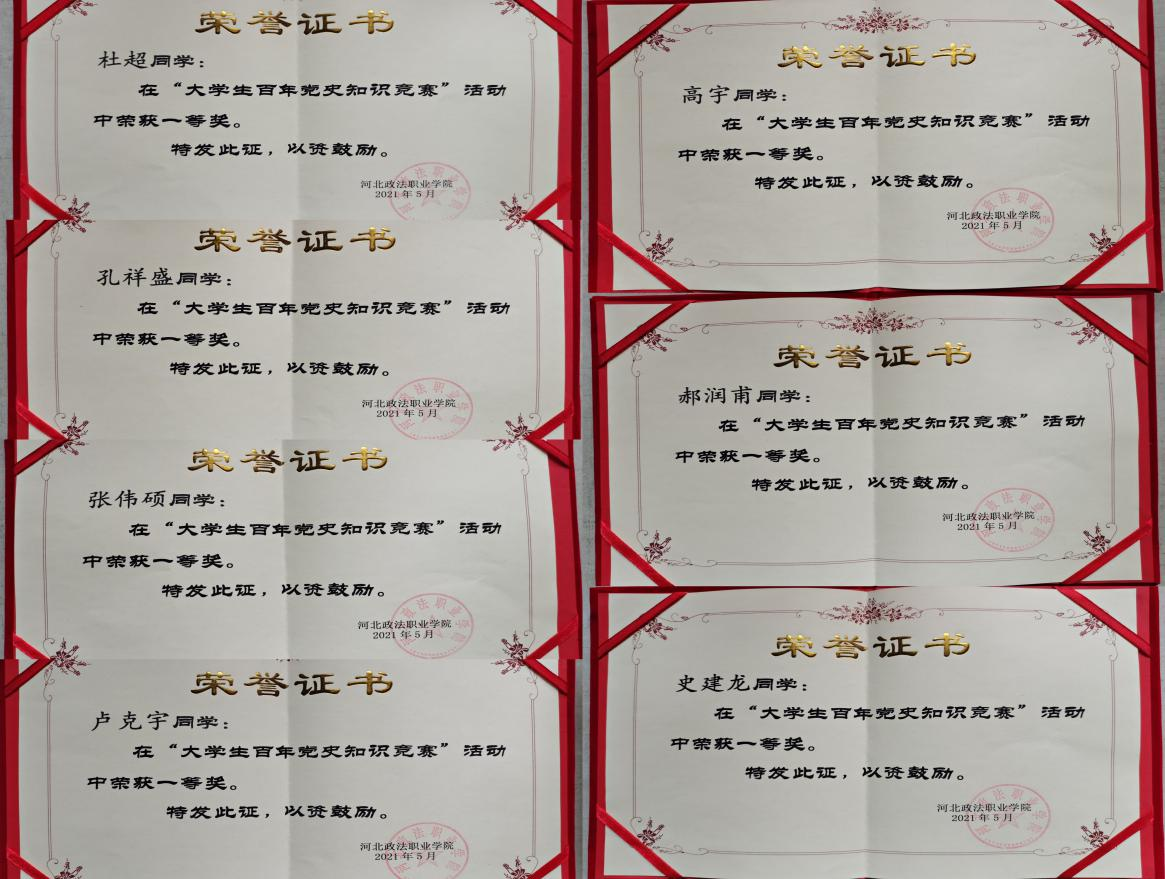 荣誉证书
杜超同学：
在“大学生百年党史知识竞赛”活动
中荣获一等奖。
特发此证，以资鼓励。
河北政法职业学院
2021年5月
荣誉证书
孔祥盛同学：
在“大学生百年党史知识竞赛”活动
中荣获一等奖。
特发此证，以资鼓励。
河北政法职业学院
2021年5月
荣誉证书
张伟硕同学：
在“大学生百年党史知识竞赛”活动
中荣获一等奖。
特发此证，以资鼓励。
河北政法职业学院
2021年5月
荣誉证书
卢克宇同学：
在“大学生百年党史知识竞赛”活动
中荣获一等奖。
特发此证，以资鼓励。
河北政法职业学院
2021年5月
荣誉证书
高宇同学：
在“大学生百年党史知识竞赛”活动
中荣获一等奖。
特发此证，以资鼓励。
河北政法职业学院
2021年5月
荣誉证书
郝润甫同学：
在“大学生百年党史知识竞赛”活动
中荣获一等奖。
特发此证，以资鼓励。
河北政法职业学院
2021年5月
荣誉证书
史建龙同学：
在“大学生百年党史知识竞赛”活动
中荣获一等奖。
特发此证，以资鼓励。
河北政法职业学院
2021年5月